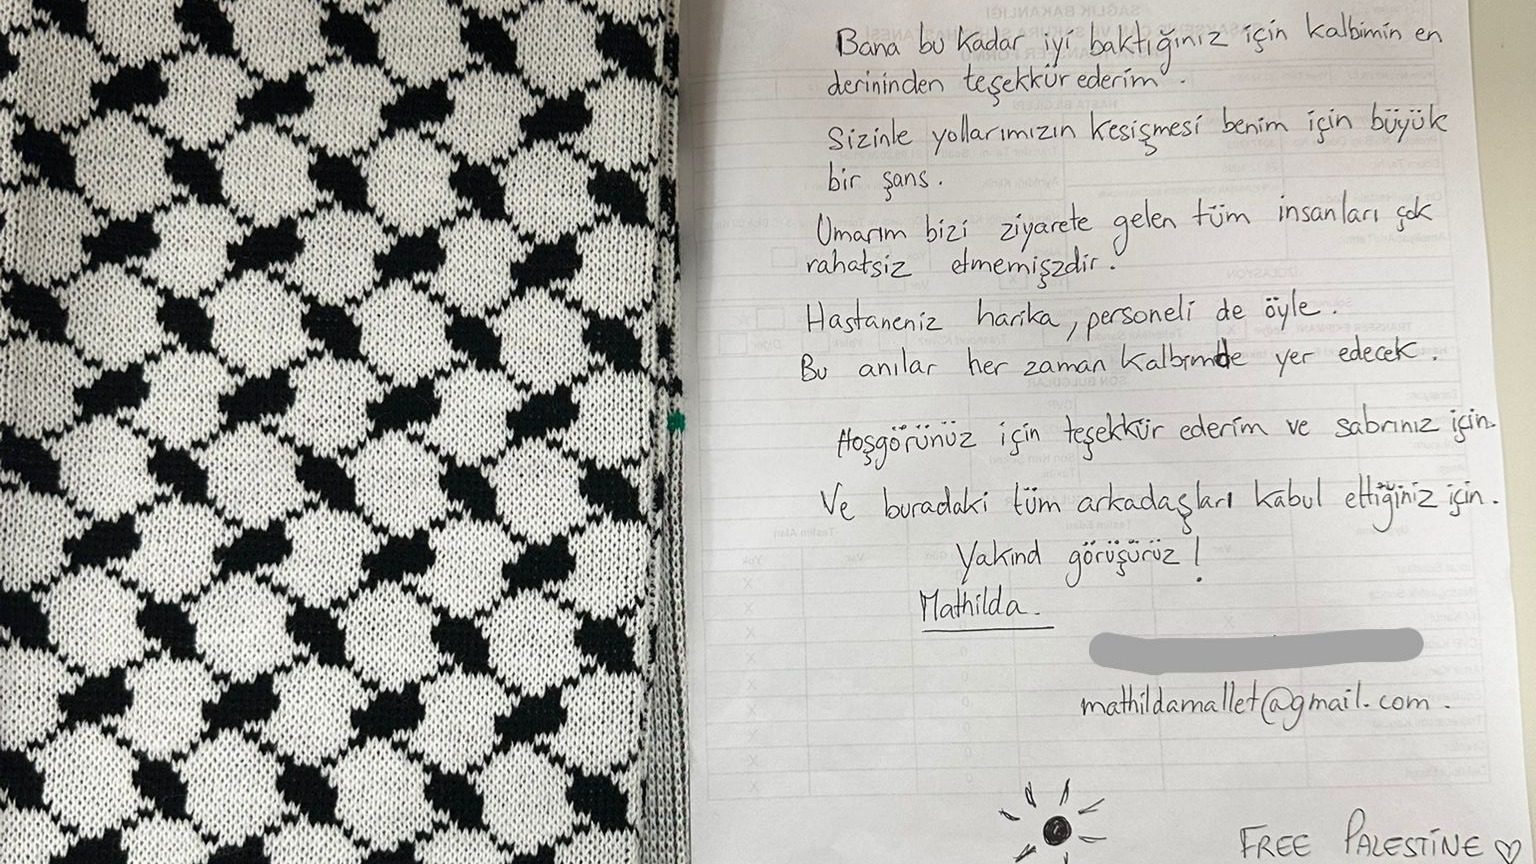 Bana bu kadar iyi baktığınız için kalbimin en
derininden teşekkür ederim.
Sizinle yollarımızın kesişmesi benim için büyük
bir şans.
Umarım bizi ziyarete gelen tüm insanları çok
rahatsız etmemişzdir.
Hastaneniz harika, personeli de öyle.
Bu anılar her zaman kalbımde yer edecek.
Hoşgörünüz için teşekkür ederim ve sabrınız için.
Ve buradaki tüm arkadaşları kabul ettiğiniz için.
Yakınd görüşürüz!
Mathilda.
mathildamallet@gmail.com.
FREE PALESTINE